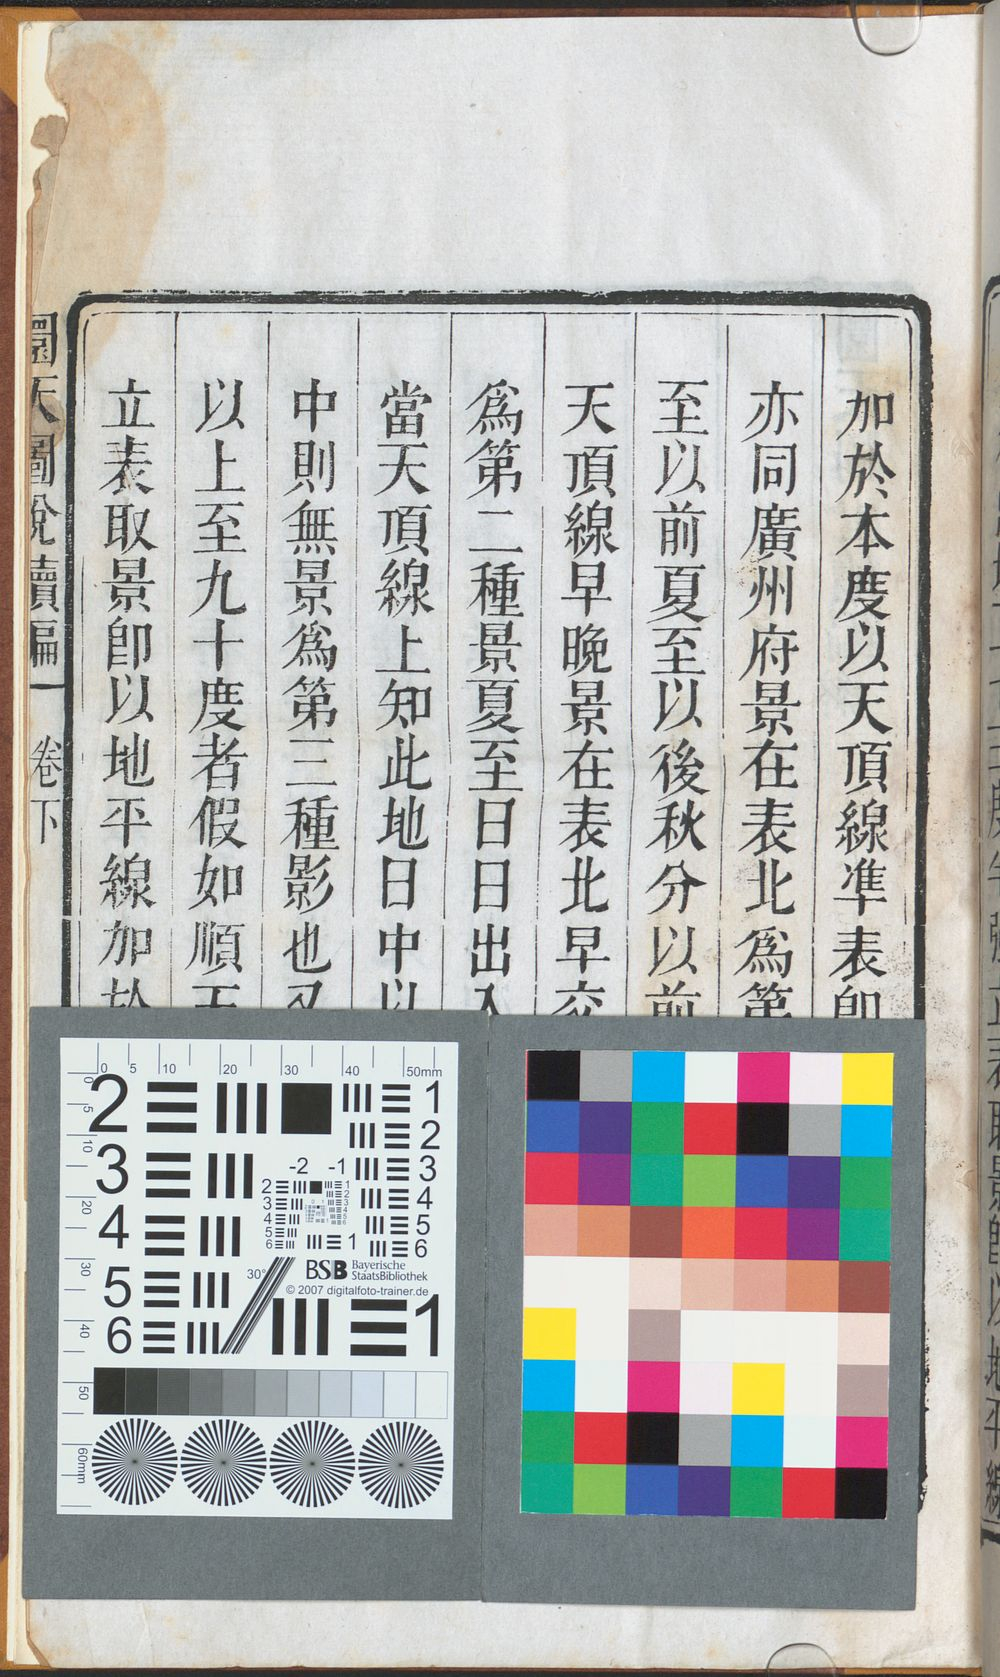 加於本度以天頂線準表卽
亦同廣州府景在表北爲第
至以前夏至以後秋分以前
天頂線早晚景在表北早交
爲第二種景夏至日日出入
當天頂線上知此地日中以
中則無景爲第三種影也又
以上至九十度者假如順天
立表取景卽以地平線加於
圜天圖說續編 卷下
0 5 10 20 30 40 50mm
0 5 10 20 30 40 50 60mm
2 3 4 5 6
1 2 3 4 5 6
-2 -1
2 3 4 5 6
1 2 3 4 5 6
1
30°
BSB Bayerische
StaatsBibliothek
© 2007 digitalfoto-trainer.de
1